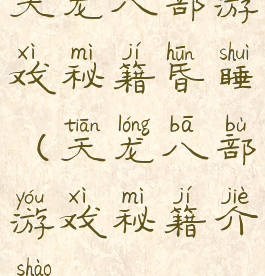 天龙八部游
xì mì jí hūn shuì
戏秘籍昏睡
tiān lóng bā bù
（天龙八部
yóu xì mì jí jiè
游戏秘籍介
shào